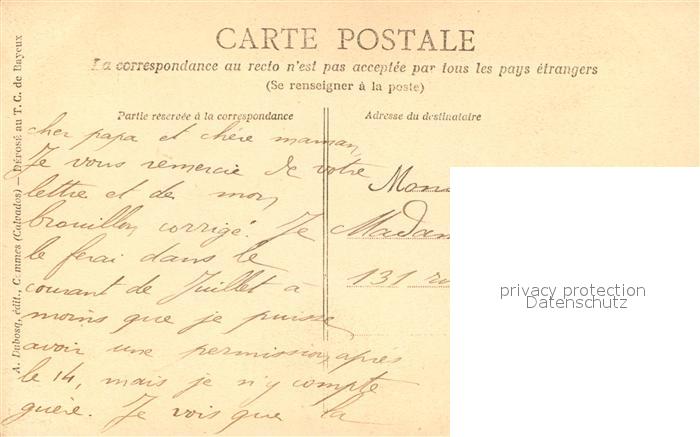 CARTE POSTALE
La correspondance au recto n'est pas acceptée par tous les pays étrangers
(Se renseigner à la poste)
Partie reservée à la correspondance
cher papa et chère maman,
Je vous remercie de votre
lettre et de mon
brouillon corrigé. Je
le ferai dans le
courant de Juillet à
moins que je puisse
avoir une permission, après
le 14, mais je n'y compte
guère. Je vois que la
Adresse du destinataire
Mons
Madam
131 ru
A. Dubosq, édit., Commes (Calvados) — Déposé au T. C. de Bayeux
privacy protection
Datenschutz